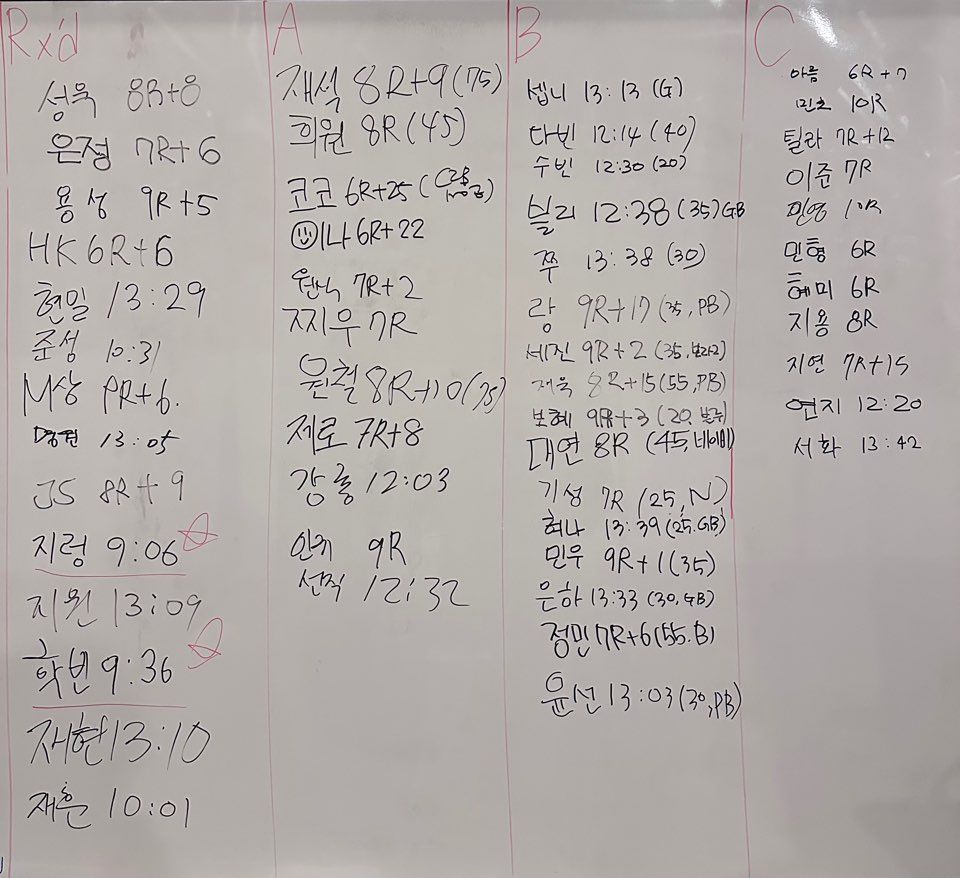 Rx'd
성욱 8R+8
은정 7R+6
용성 9R+5
HK 6R+6
현일 13:29
준성 10:31
M상 8R+6.
13:05
JS 8R+9
지렁 9:06
지원 13:09
학빈 9:36
재현 13:10
재훈 10:01
A
재석 8R+9 (75)
희원 8R (45)
코코 6R+25
이나 6R+22
원식 7R+2
찌우 7R
윤철 8R+10 (75)
제로 7R+8
강룡 12:03
9R
선직 12:32
B
셉니 13:13 (G)
다빈 12:14 (40)
수빈 12:30 (20)
블리 12:38 (35) GB
쭈 13:38 (30)
랑 9R+17 (35, PB)
세진 9R+2 (35, 보라고)
재욱 8R+15 (55, PB)
보혜 9R+3 (20,
대연 8R (45, 네이비)
기성 7R (25, N)
혀나 13:39 (25. GB)
민우 9R+1 (35)
은하 13:33 (30, GB)
정민 7R+6 (55. B)
윤선 13:03 (30, PB)
C
아름 6R+7
민초 10R
틸라 7R+12
이준 7R
민영 10R
민형 6R
혜미 6R
지용 8R
지연 7R+15
연지 12:20
서화 13:42